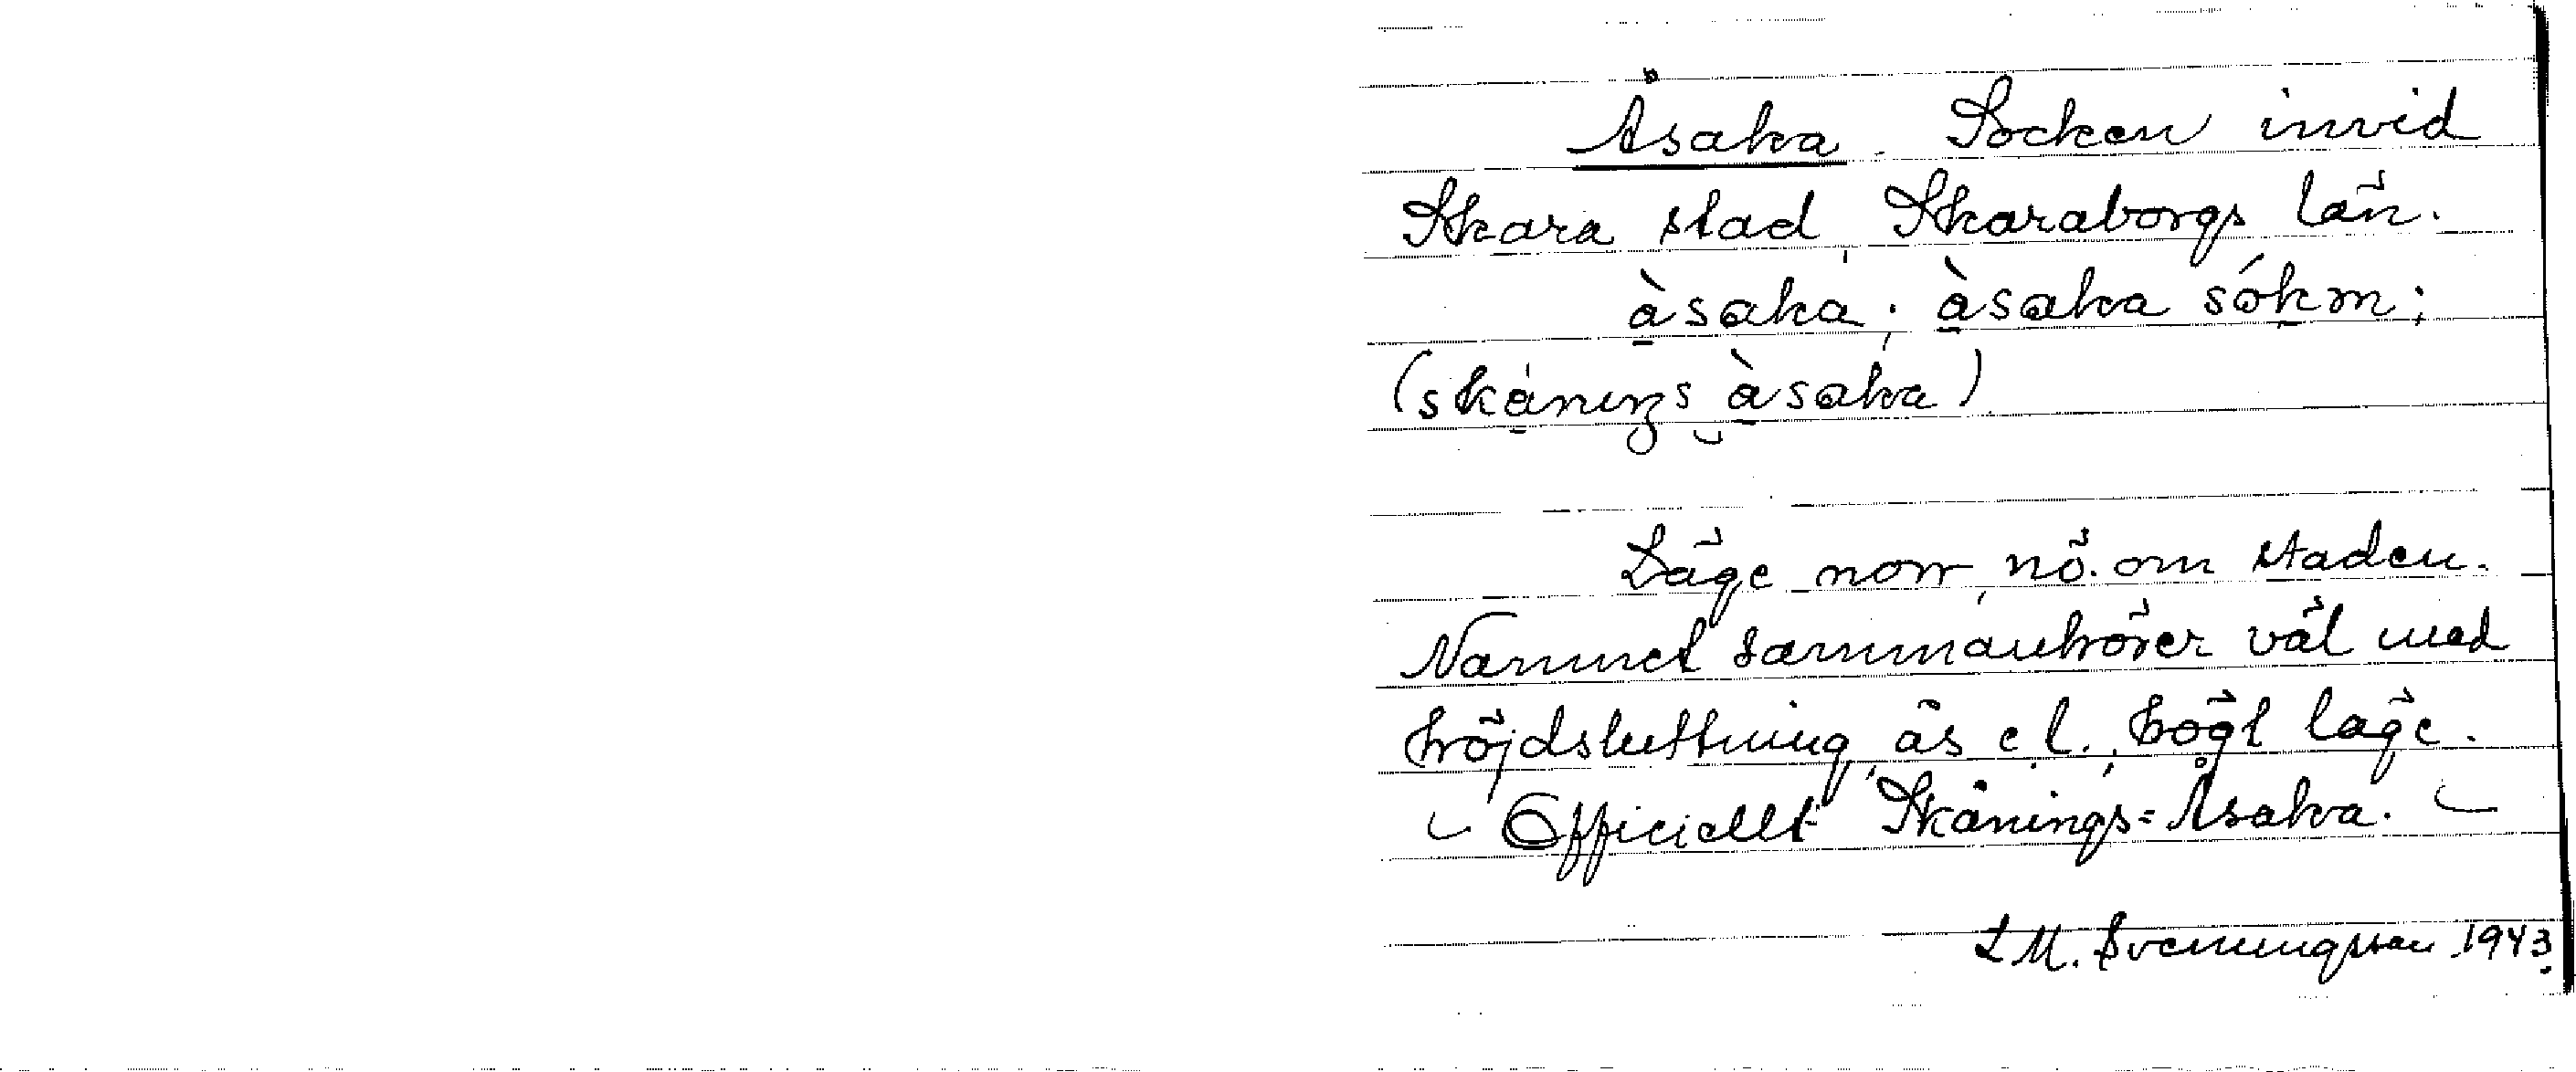 Åsaka. Socken invid
Skara stad, Skaraborgs län.
àsaka; àsaka sókm;
(skánıŋs àsaka)
Läge norr, nö. om staden.
Namnet sammanhörer väl med
höjdsluttning, ås el., högt läge.
– Officiellt Skånings=Åsaka. –
L M. Svenningsson 1943.